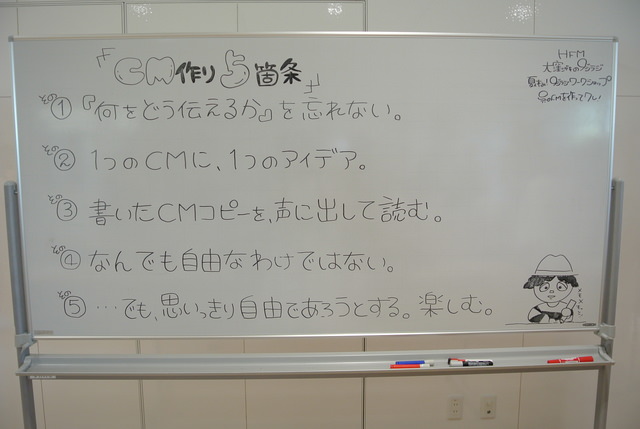 『CM作り5箇条』
HFM
その① 『何をどう伝えるか』を忘れない。
その② 1つのCMに、1つのアイデア。
その③ 書いたCMコピーを、声に出して読む。
その④ なんでも自由なわけではない。
その⑤ …でも、思いっきり自由であろうとする。楽しむ。